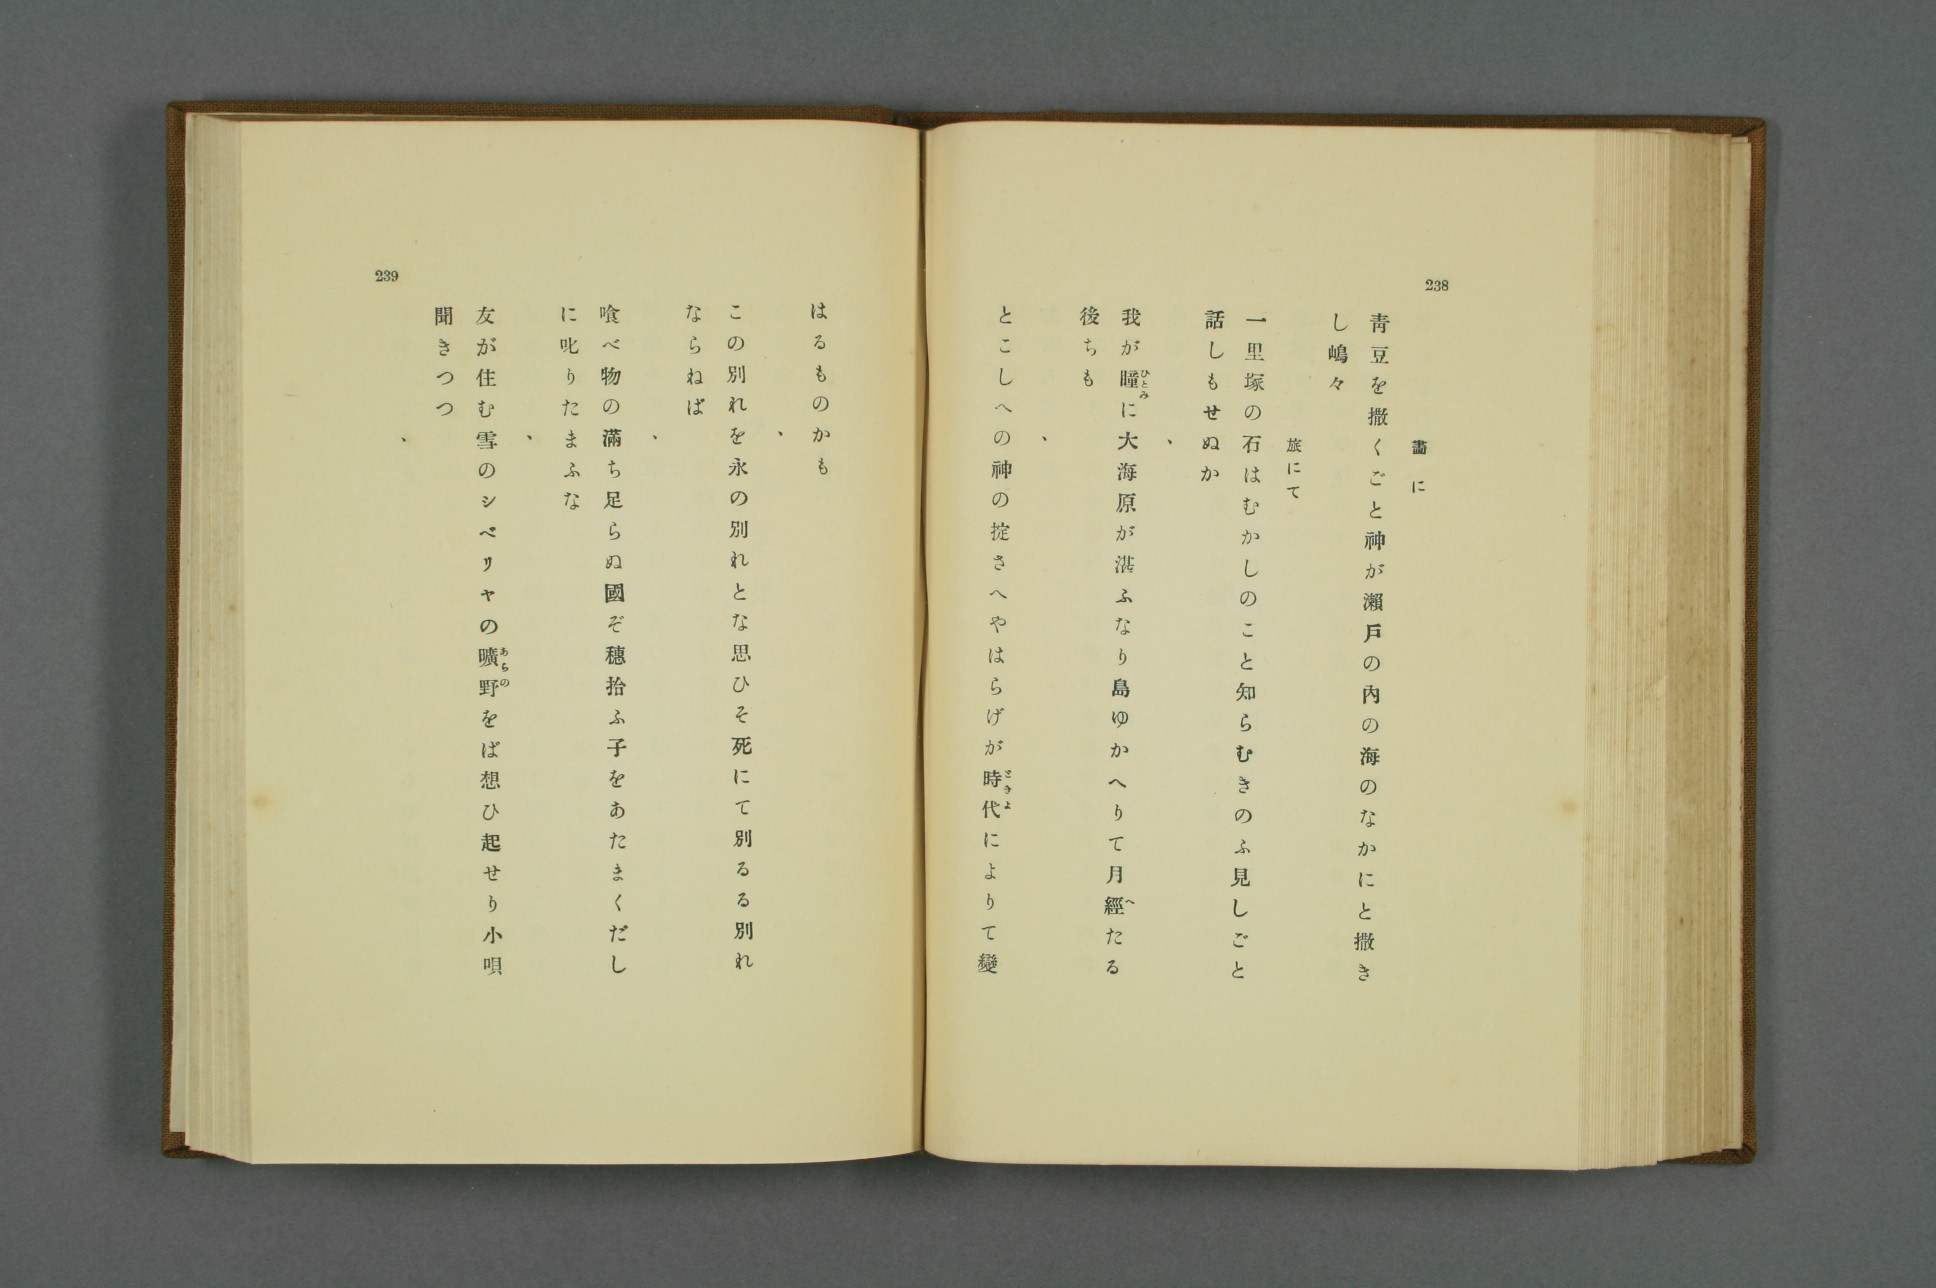 238
畵に
青豆を撒くごと神が瀨戶の內の海のなかにと撒き
し嶋々
旅にて
一里塚の石はむかしのこと知らむきのふ見しごと
話しもせぬか
、
我が瞳に大海原が湛ふなり島ゆかへりて月經たる
ひとみ
へ
後ちも
、
とこしへの神の掟さへやはらげが時代によりて變
ときよ
239
はるものかも
、
この別れを永の別れとな思ひそ死にて別るる別れ
ならねば
、
喰べ物の滿ち足らぬ國ぞ穗拾ふ子をあたまくだし
に叱りたまふな
、
友が住む雪のシベリヤの曠野をば想ひ起せり小唄
あらの
聞きつつ
、